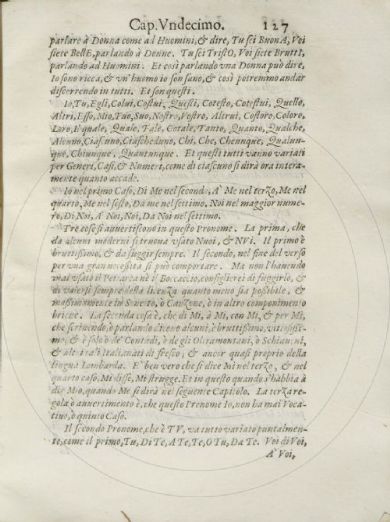 Cap. Vndecimo. 127
parlare à Donna come ad Huomini, & dire, Tu sei BuonA, Voi
siete BellE, parlando à Donne. Tu sei TristO, Voi siete BruttI,
parlando ad Huomini. Et così parlando vna Donna può dire,
Io sono ricca, & vn'huomo io son sano, & così potremmo andar
discorrendo in tutti. Et son questi.
Io, Tu, Egli, Colui, Costui, Questi, Cotesto, Cotestui, Quello,
Altri, Esso, Mio, Tuo, Suo, Nostro, Vostro, Altrui, Costoro, Coloro,
Loro, Il quale, Quale, Tale, Cotale, Tanto, Quanto, Qualche,
Alcuno, Ciascuno, Ciascheduno, Chi, Che, Chennque, Qualun-
que, Chiunque, Quantunque. Et questi tutti vanno variati
per Generi, Casi, & Numeri, come di ciascuno si dirà ora intera-
mente quanto accade.
Io nel primo Caso, Di Me nel secondo, A' Me nel terzo, Me nel
quarto, Me nel sesto, Da me nel settimo. Noi nel maggior nume-
ro, Di Noi, A' Noi, Noi, Da Noi nel settimo.
Tre cose si auuertiscono in questo Pronome. La prima, che
da alcuni moderni si truoua vsato Nuoi, & NVi. Il primo è
bruttissimo, & da fuggir sempre. Il secondo, nel fine del verso
per vna gran necessità si può comportare. Ma non l'hauendo
mai vsato il Petrarca nè il Boccaccio, consiglierei di fuggirlo, &
di valersi sempre della licenza quanto meno sia possibile, &
massimamente in Sonetto, ò Canzone, ò in altro componimento
brieue. La seconda cosa è, che di Mi, à Mi, con Mi, & per Mi,
che scriuendo, ò parlando dicono alcuni, è bruttissimo, vitiosissi-
mo, & è solo ò de' Contadi, ò de gli Oltramontani, ò Schiauoni,
& altri tra gl'Italiani di fresco, & ancor quasi proprio della
lingua Lombarda. E' ben vero che si dice Mi nel terzo, & nel
quarto caso, Mi disse, Mi strugge. Et in questo quando s'habbia à
dir Mio, quando Me si dirà nel seguente Capitolo. La terza re-
gola ò auuertimento è, che questo Pronome Io, non ha mai Voca-
tiuo, ò quinto Caso.
Il secondo Pronome, che è TV, va tutto variato puntalmen-
te, come il primo, Tu, Di Te, A Te, Te, O Tu, Da Te. Voi di Voi,
A' Voi,